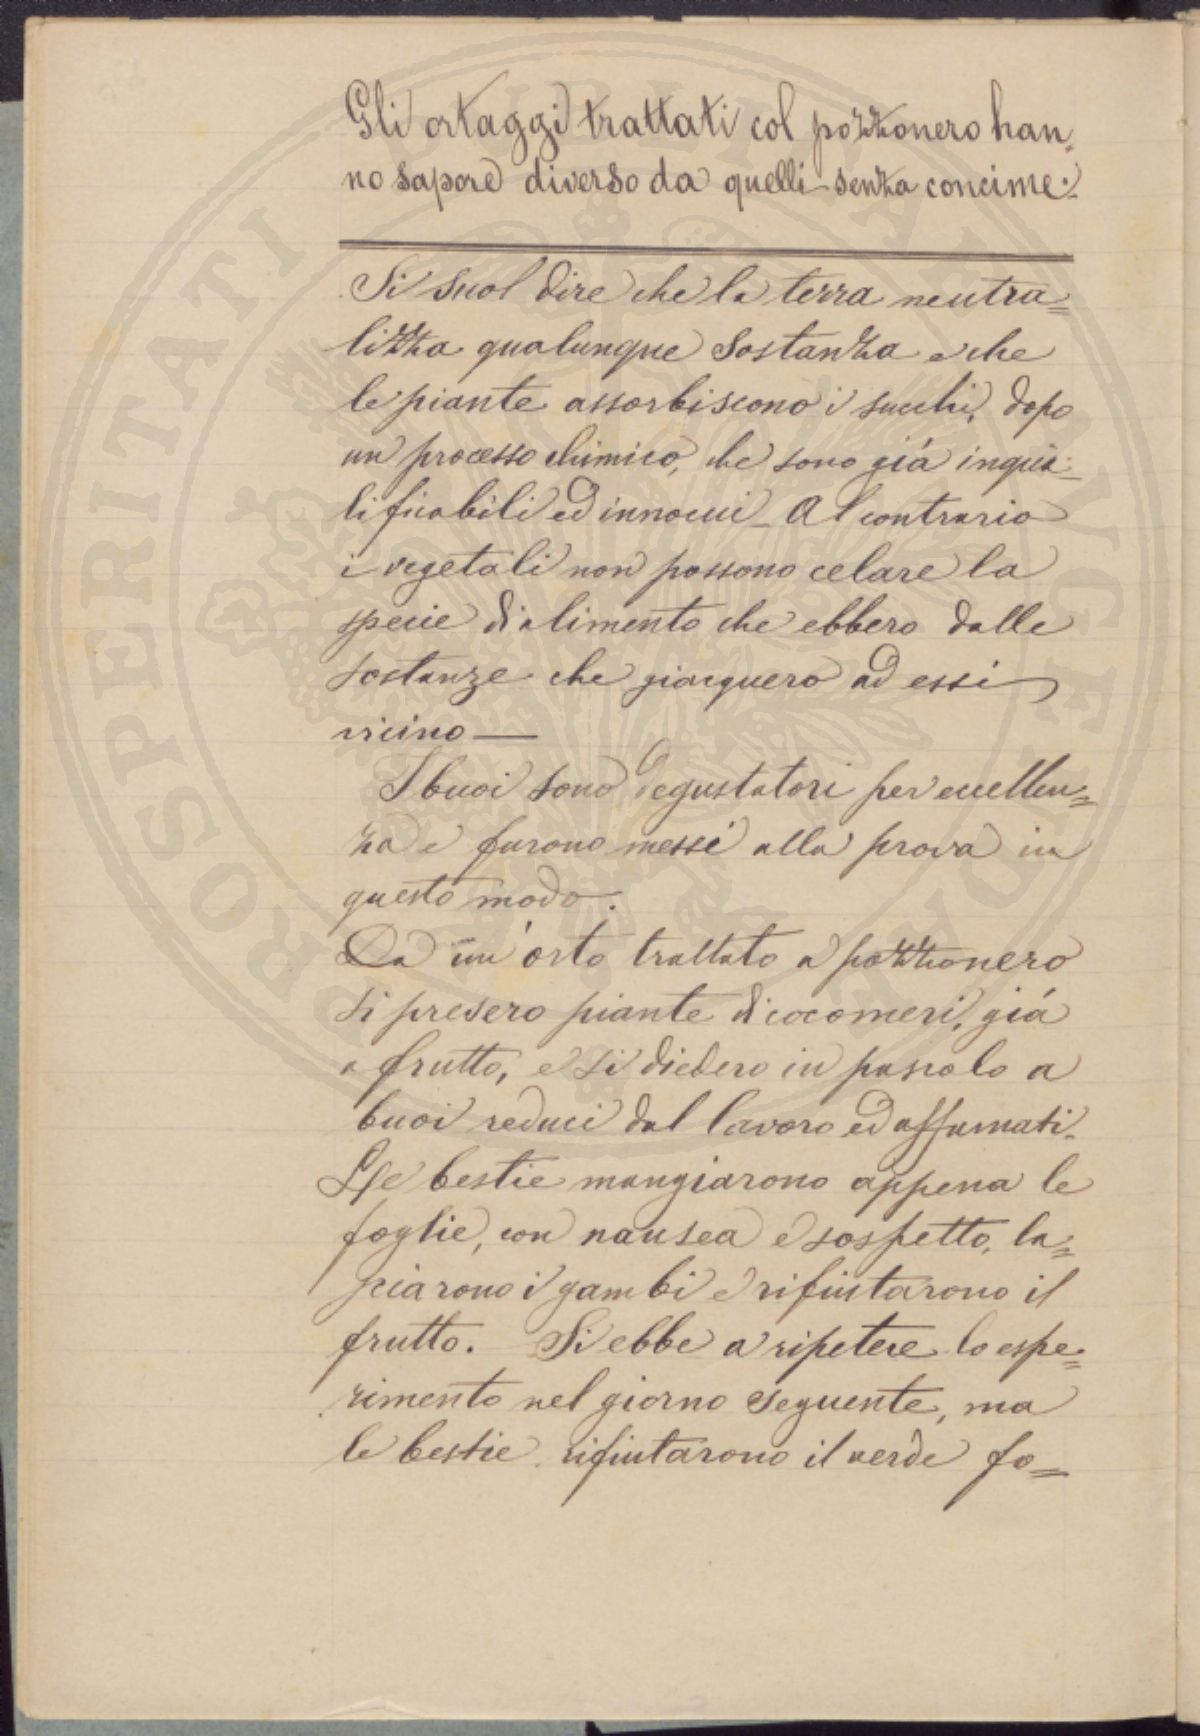 Gli ortaggi trattati col pozzonero han-
no sapore diverso da quelli senza concime.
Si suol dire che la terra neutra=
lizza qualunque sostanza e che
le piante assorbiscono i succhi, dopo
un processo chimico, che sono giá inqua-
lificabili ed innocui_ Al contrario
i vegetali non possono celare la
specie di alimento che ebbero dalle
sostanze che giacquero ad essi
vicino—
I buoi sono degustatori per eccellen=
za e furono messi alla prova in
questo modo.
Da un'orto trattato a pozzonero
si presero piante di cocomeri, giá
a frutto, e si diedero in pascolo a
buoi reduci dal lavoro ed affamati.
Le bestie mangiarono appena le
foglie, con nausea e sospetto, la=
sciarono i gambi e rifiutarono il
frutto. Si ebbe a ripetere lo espe=
rimento nel giorno seguente, ma
le bestie rifiutarono il verde fo=
PROSPERITATI